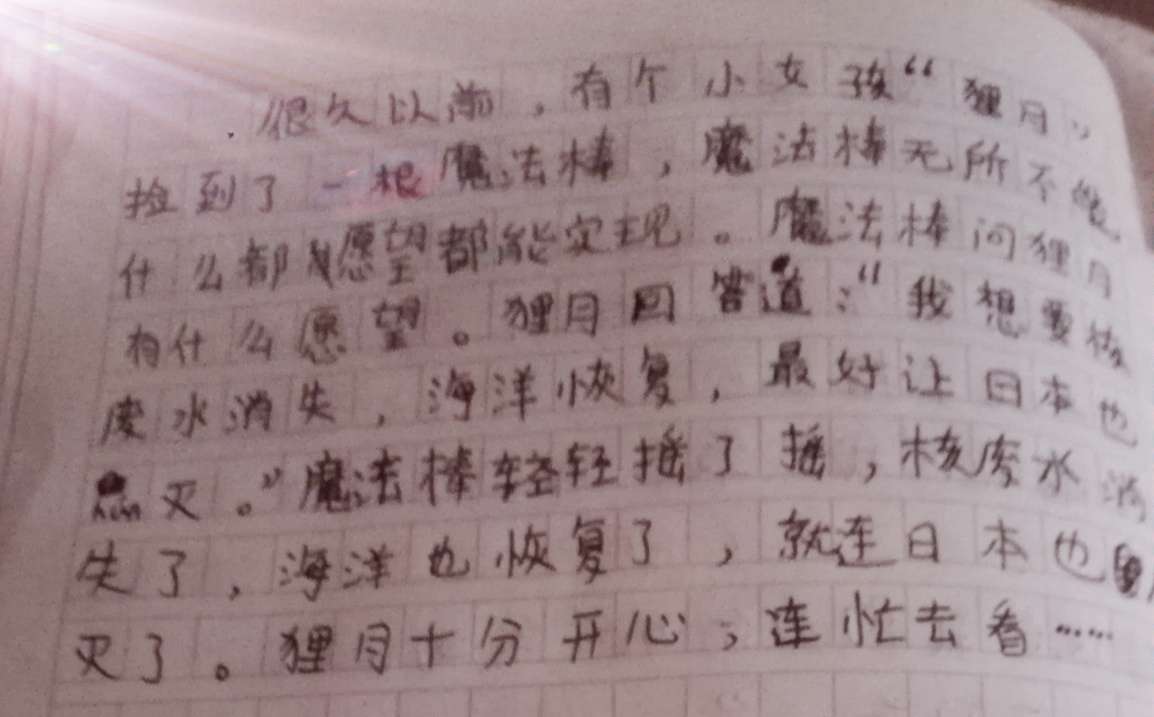 很久以前，有个小女孩“狸月”
捡到了一根魔法棒，魔法棒无所不能
什么都愿望都能实现。魔法棒问狸月
有什么愿望。狸月回答道：“我想要核
废水消失，海洋恢复，最好让日本也
灭。”魔法棒轻轻摇了摇，核废水消
失了，海洋也恢复了，就连日本也
灭了。狸月十分开心，连忙去看……